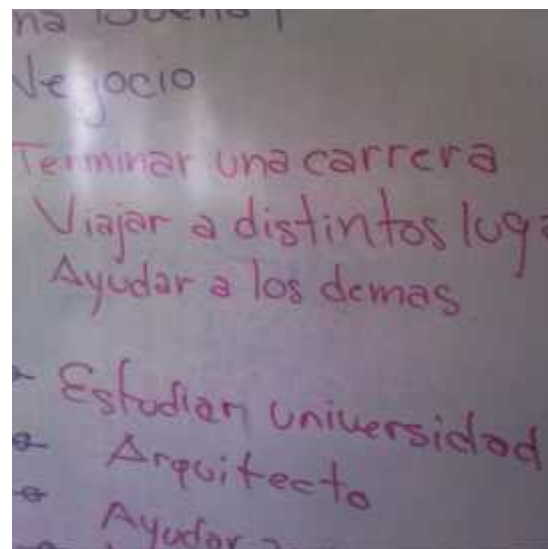 Negocio
Terminar una carrera
Viajar a distintos
Ayudar a los demas
Estudiar universidad
Arquitecto
Ayudar